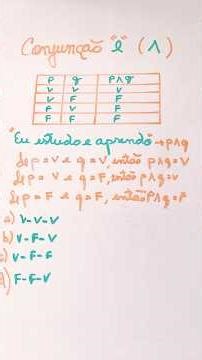 Conjunção "e" (∧)
p q p∧q
V V V
V F F
F V F
F F F
"Eu estudo e aprendo" → p∧q
Se p = V e q = V, então p∧q = V
Se p = V e q = F, então p∧q = V
Se p = F e q = F, então p∧q = F
a) V-V-V
b) V-F-V
c) V-F-F
d) F-F-V